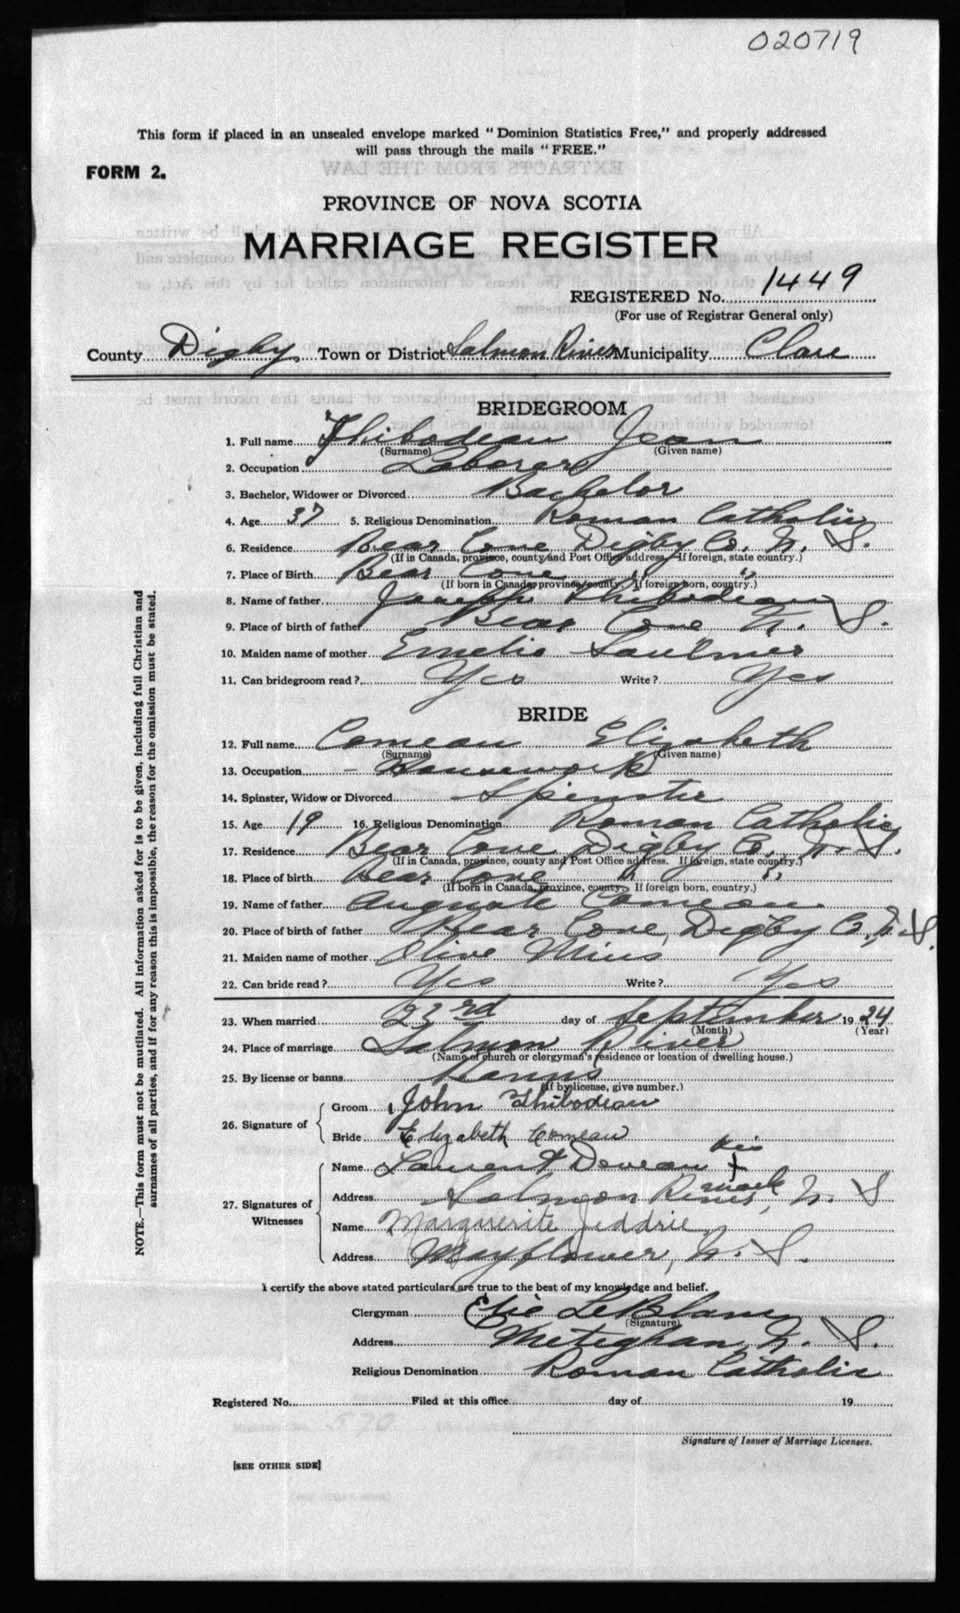 020719
This form if placed in an unsealed envelope marked "Dominion Statistics Free," and properly addressed
will pass through the mails "FREE."
FORM 2.
PROVINCE OF NOVA SCOTIA
MARRIAGE REGISTER
REGISTERED No. 1449
(For use of Registrar General only)
County Digby Town or District Salmon River Municipality Clare
BRIDEGROOM
1. Full name Thibodeau Jean
(Surname) (Given name)
2. Occupation Laborer
3. Bachelor, Widower or Divorced Bachelor
4. Age 37 5. Religious Denomination Roman Catholic
6. Residence Bear Cove Digby Co. N. S.
(If in Canada, province, county and Post Office address. If foreign, state country.)
7. Place of Birth Bear Cove " "
(If born in Canada, province, county. If foreign born, country.)
8. Name of father Joseph Thibodeau
9. Place of birth of father Bear Cove N. S.
10. Maiden name of mother Emelie Saulnier
11. Can bridegroom read? Yes Write? Yes
BRIDE
12. Full name Comeau Elizabeth
(Surname) (Given name)
13. Occupation - Housework
14. Spinster, Widow or Divorced Spinster
15. Age 19 16. Religious Denomination Roman Catholic
17. Residence Bear Cove Digby Co. N. S.
(If in Canada, province, county and Post Office address. If foreign, state country.)
18. Place of birth Bear Cove " "
(If born in Canada, province, county. If foreign born, country.)
19. Name of father Auguste Comeau
20. Place of birth of father Bear Cove, Digby Co., N. S.
21. Maiden name of mother Olive Mius
22. Can bride read? Yes Write? Yes
23. When married 23rd day of September 1924
(Month) (Year)
24. Place of marriage Salmon River
(Name of church or clergyman's residence or location of dwelling house.)
25. By license or banns Banns
(If by license, give number.)
26. Signature of Groom John Thibodeau
Bride Elizabeth Comeau
his
27. Signatures of Witnesses Name Laurent Deveau x
mark
Address Salmon River, N. S
Name Marguerite Jeddrie
Address Mayflower, N. S.
I certify the above stated particulars are true to the best of my knowledge and belief.
Clergyman Elie LeBlanc
(Signature)
Address Meteghan, N. S.
Religious Denomination Roman Catholic
Registered No. Filed at this office day of 19
Signature of Issuer of Marriage Licenses.
[SEE OTHER SIDE]
NOTE.—This form must not be mutilated. All information asked for is to be given, including full Christian and
surnames of all parties, and if for any reason this is impossible, the reason for the omission must be stated.